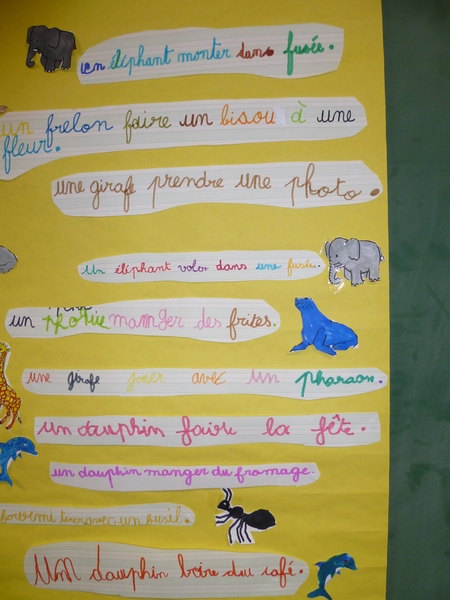 un éléphant monter dans fusée.
un frelon faire un bisou à une
fleur.
une girafe prendre une photo.
un éléphant voler dans une fusée.
un phoque manger des frites.
une girafe jouer avec un pharaon.
un dauphin faire la fête.
un dauphin manger du fromage.
fourmi tirer avec un fusil.
Un dauphin boire du café.